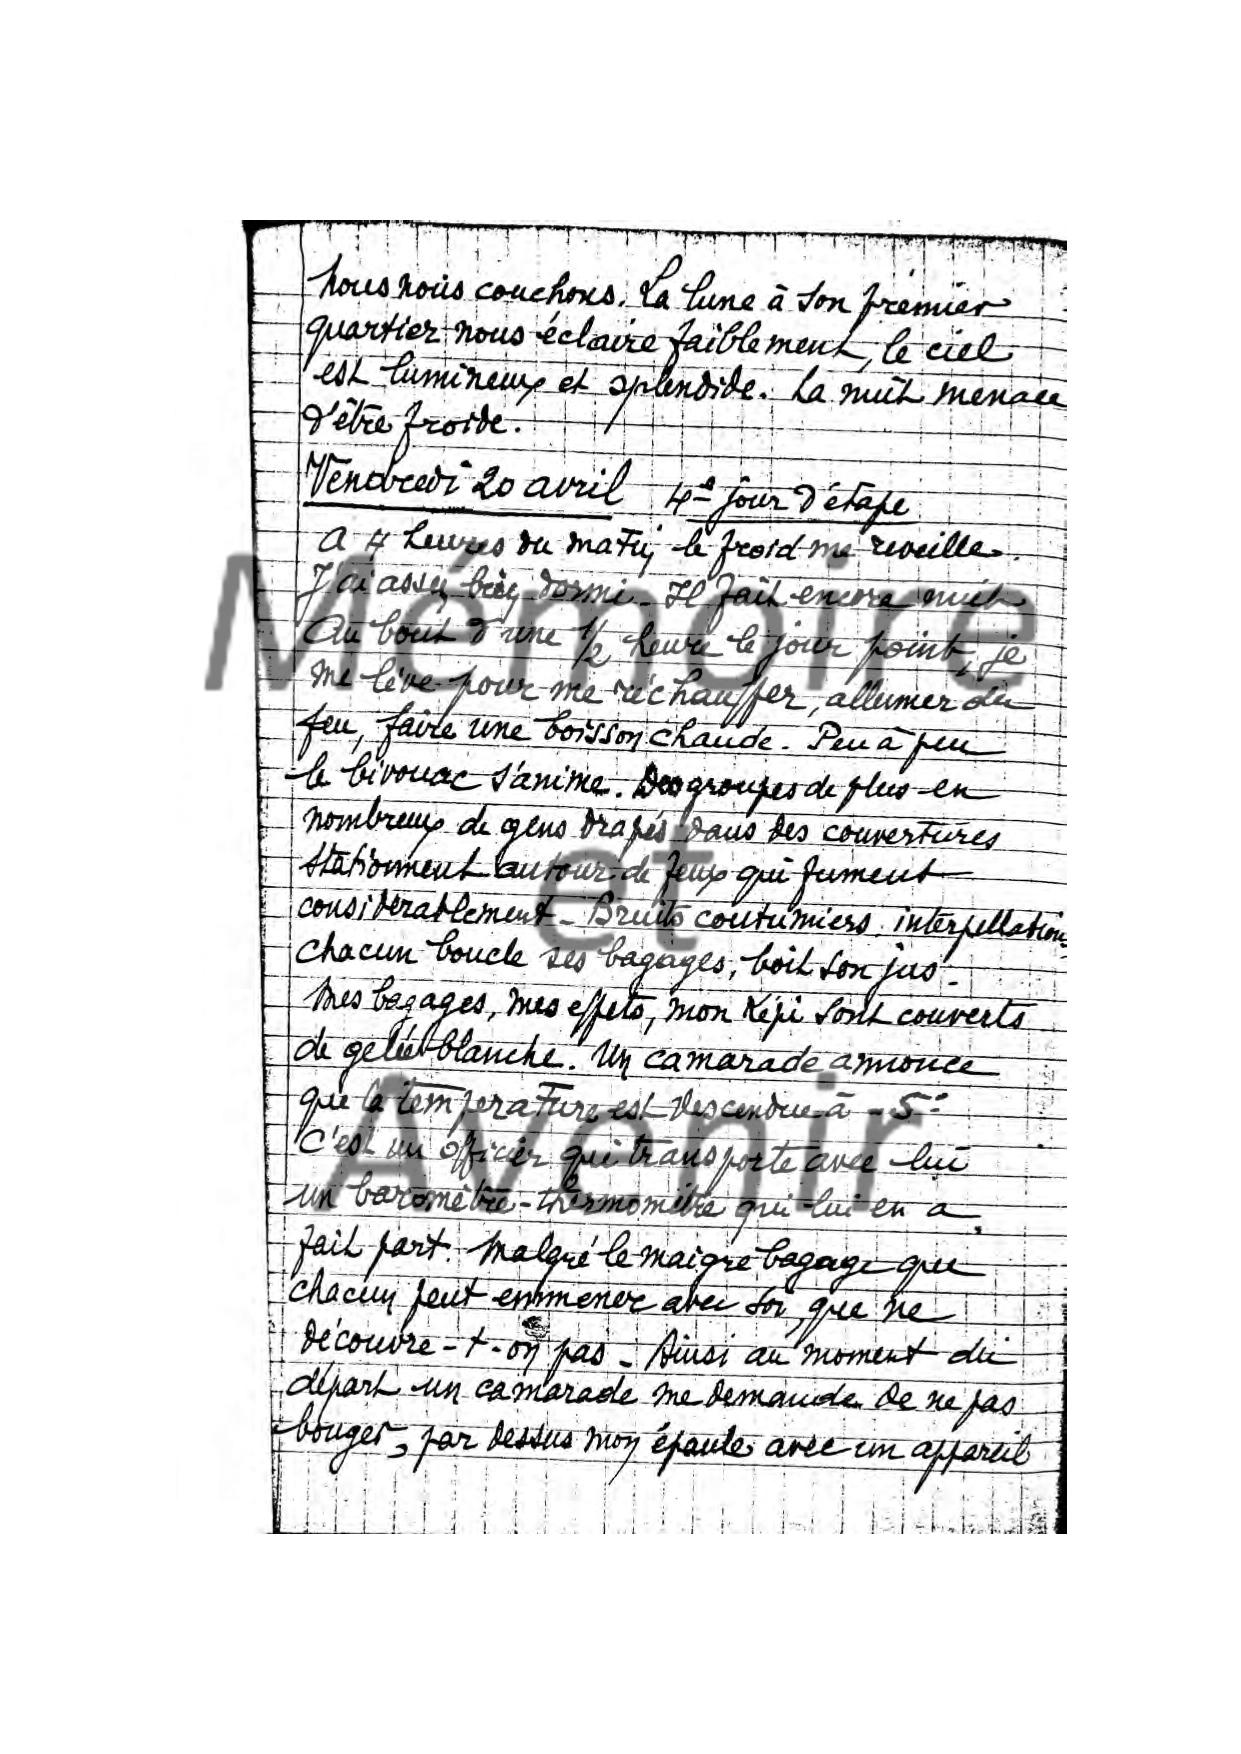 nous nous couchons. La lune à son premier
quartier nous éclaire faiblement, le ciel
est lumineux et splendide. La nuit menace
d'être froide.
Vendredi 20 avril 4e jour d'étape
A 4 heures du matin le froid me reveille.
J'ai assez bien dormi - Il fait encore nuit
Au bout d'une 1/2 heure le jour point, je
me lève pour me réchauffer, allumer du
feu, faire une boisson chaude - Peu à peu
le bivouac s'anime. Des groupes de plus en
nombreux de gens drapés dans des couvertures
stationnent autour de feux qui fument
considérablement - Bruits coutumiers. interpellations
Chacun boucle ses bagages, boit son jus -
Mes bagages, mes effets, mon képi sont couverts
de gelée blanche. Un camarade annonce
que la température est descendue à -5°
C'est un officier qui transporte avec lui
un baromètre-thermomètre qui lui en a
fait part. Malgré le maigre bagage que
chacun peut emmener avec soi, que ne
découvre-t-on pas - Ainsi au moment du
départ un camarade me demande de ne pas
bouger, par dessus mon épaule avec un appareil
Mémoire
et
Avenir